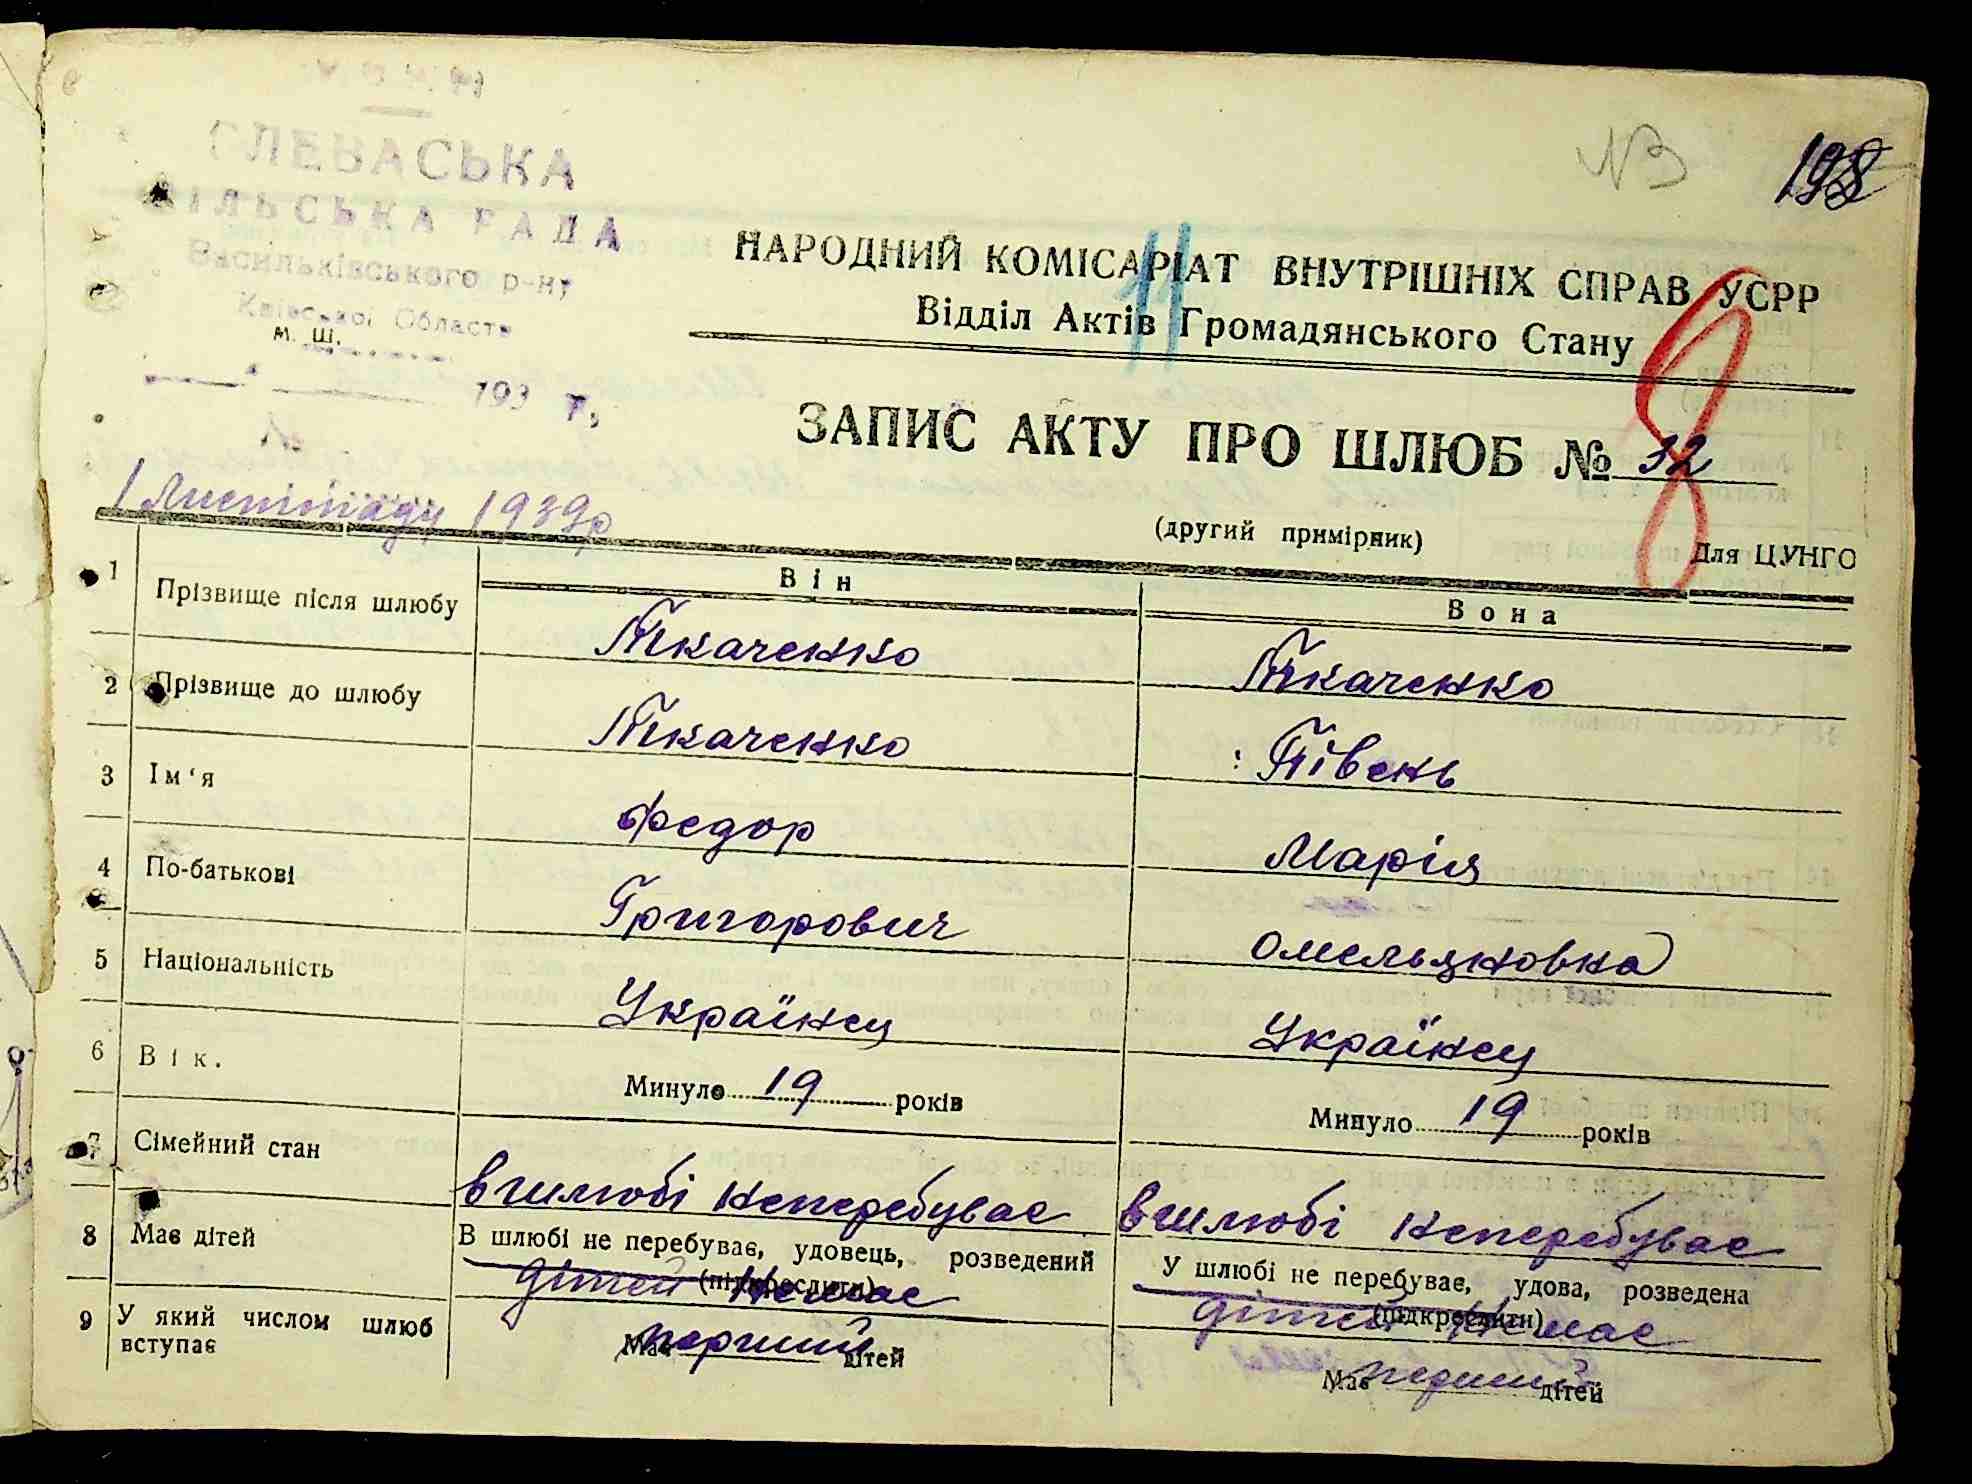 ГЛЕВАСЬКА
СІЛЬСЬКА РАДА
Васильківського р-ну
Київської Області
м. ш.
193 р.
№
1 Листопаду 1939р
№3
198
11
НАРОДНИЙ КОМІСАРІАТ ВНУТРІШНІХ СПРАВ УСРР
Відділ Актів Громадянського Стану
8
ЗАПИС АКТУ ПРО ШЛЮБ № 32
(другий примірник)
Для ЦУНГО
Він
Вона
1 Прізвище після шлюбу Ткаченко Ткаченко
2 Прізвище до шлюбу Ткаченко Півень
3 Ім'я Федор Марія
4 По-батькові Григорович Омельяновна
5 Національність Українец Українец
6 Вік. Минуло 19 років Минуло 19 років
7 Сімейний стан вшлюбі неперебуває вшлюбі неперебуває
В шлюбі не перебуває, удовець, розведений
(підкреслити)
У шлюбі не перебуває, удова, розведена
(підкреслити)
8 Має дітей дітей немає дітей немає
Має дітей
Має дітей
9 У який числом шлюб
вступає
перший перший